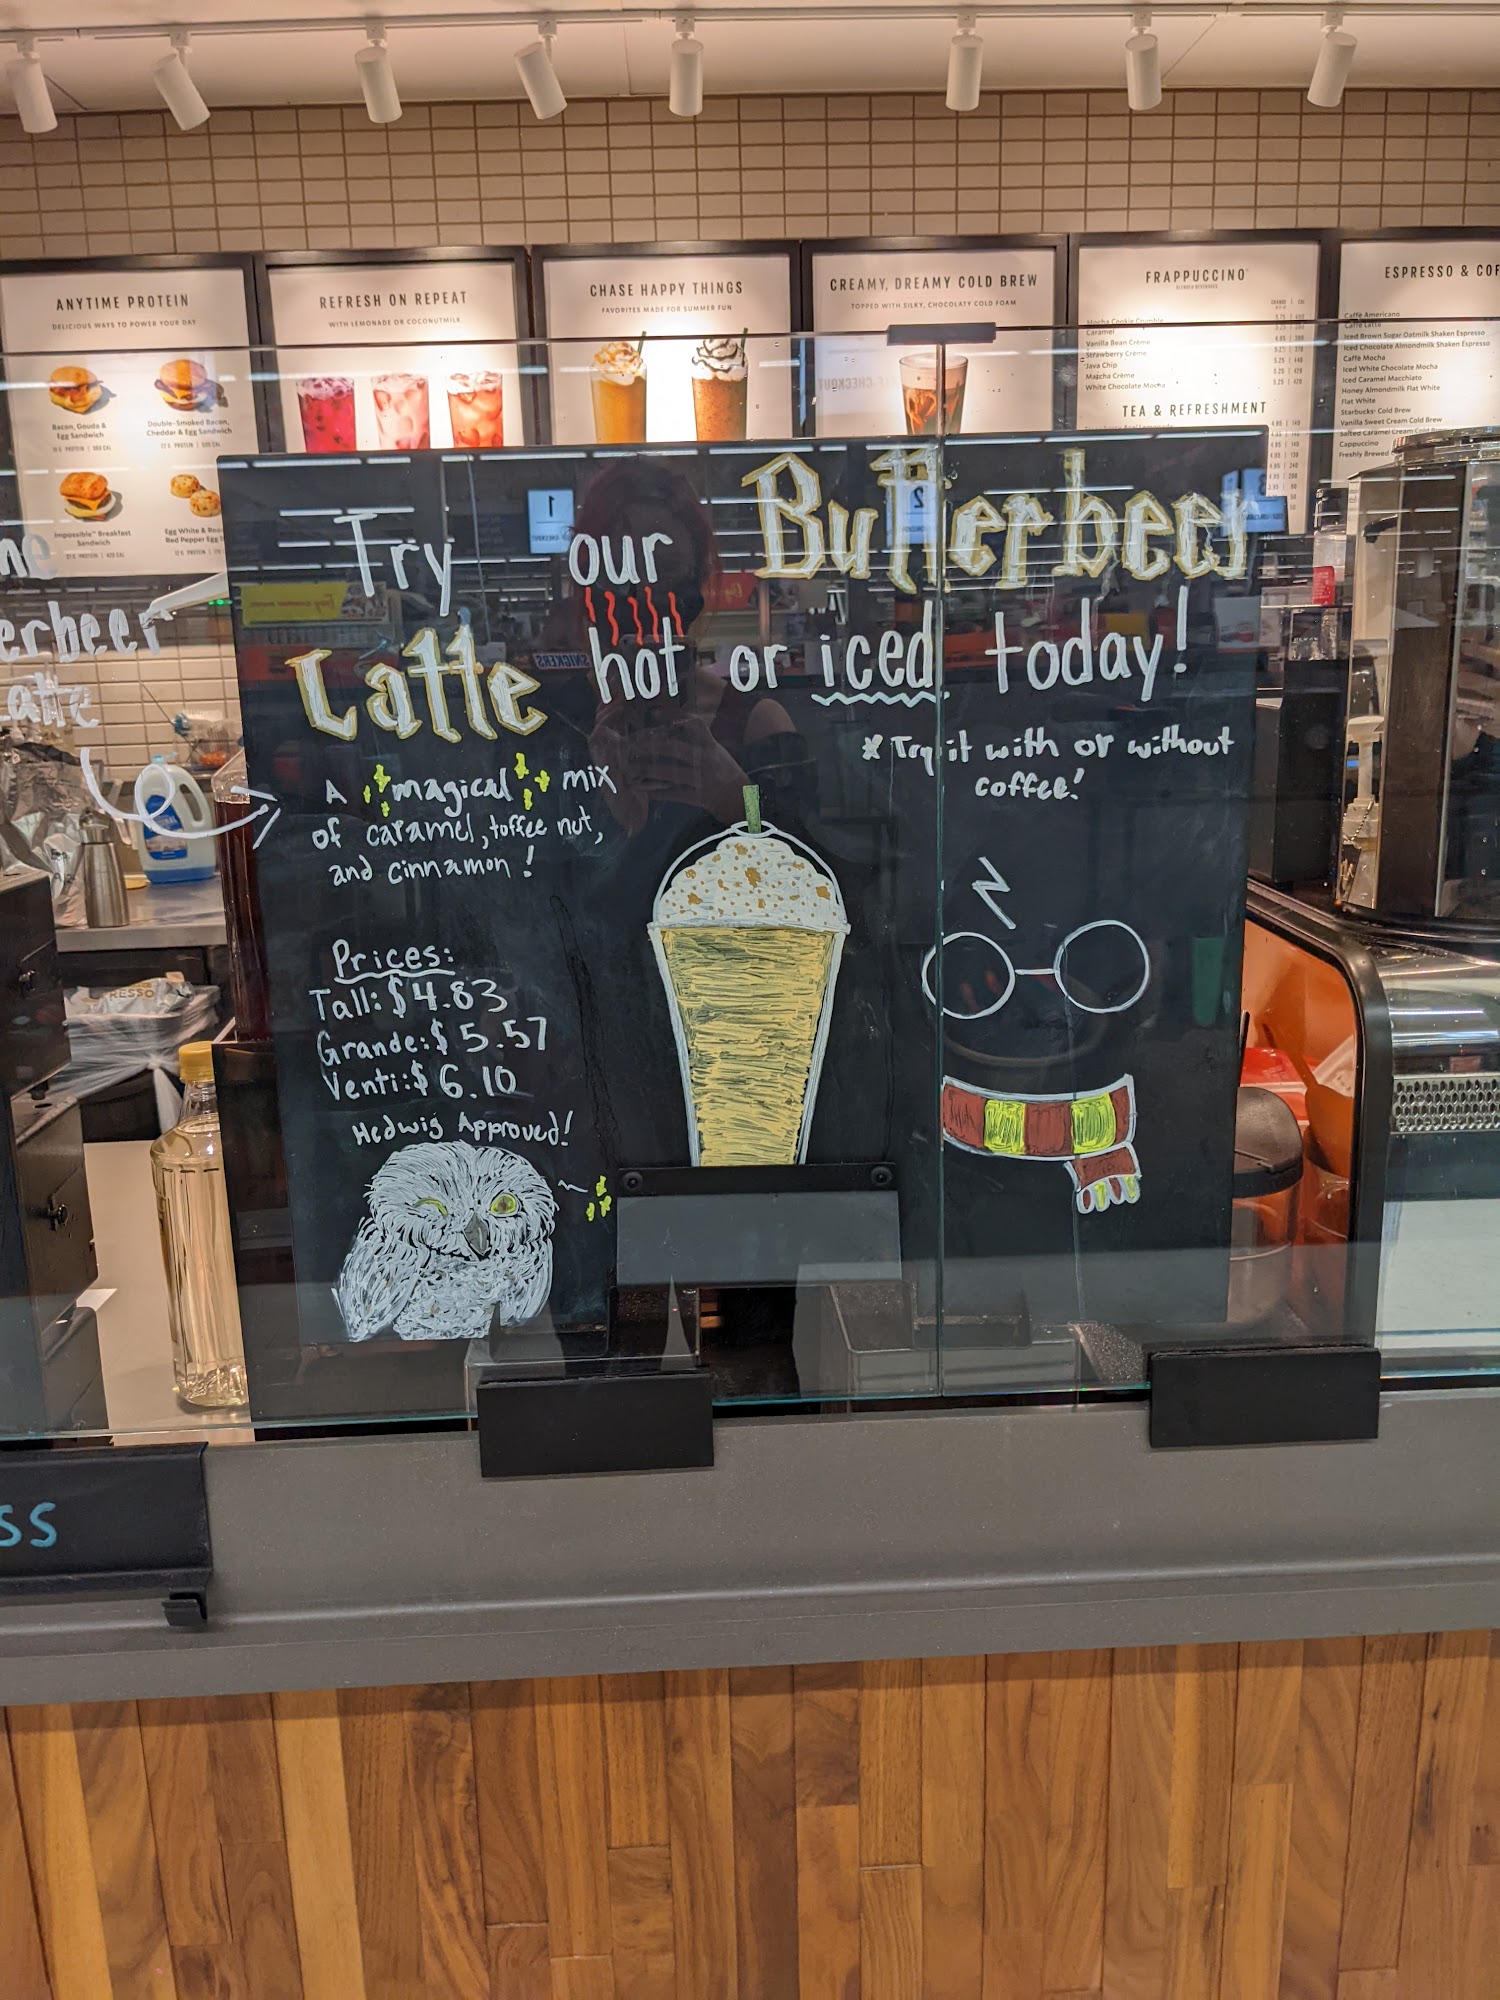 ANYTIME PROTEIN
DELICIOUS WAYS TO POWER YOUR DAY
Bacon, Gouda &
Egg Sandwich
Double-Smoked Bacon,
Cheddar & Egg Sandwich
Impossible™ Breakfast
Sandwich
Egg White & Roa
Red Pepper Egg
REFRESH ON REPEAT
WITH LEMONADE OR COCONUTMILK
CHASE HAPPY THINGS
FAVORITES MADE FOR SUMMER FUN
CREAMY, DREAMY COLD BREW
TOPPED WITH SILKY, CHOCOLATY COLD FOAM
FRAPPUCCINO
BLENDED BEVERAGES
GRANDE | CAL
Mocha Cookie Crumble
Caramel
Vanilla Bean Crème
Strawberry Crème
Java Chip
Matcha Crème
White Chocolate Mocha
TEA & REFRESHMENT
ESPRESSO & COF
Caffè Americano
Caffè Latte
Iced Brown Sugar Oatmilk Shaken Espresso
Iced Chocolate Almondmilk Shaken Espresso
Caffè Mocha
Iced White Chocolate Mocha
Iced Caramel Macchiato
Honey Almondmilk Flat White
Flat White
Starbucks® Cold Brew
Vanilla Sweet Cream Cold Brew
Salted Caramel Cream Cold Bre
Cappuccino
Freshly Brewed
Try our Butterbeer
Latte hot or iced today!
* Try it with or without
coffee!
A magical mix
of caramel, toffee nut,
and cinnamon!
Prices:
Tall: $4.83
Grande: $5.57
Venti: $6.10
Hedwig Approved!
me
erbeer
Latte
RESSO
1
2
SNICKERS
SS